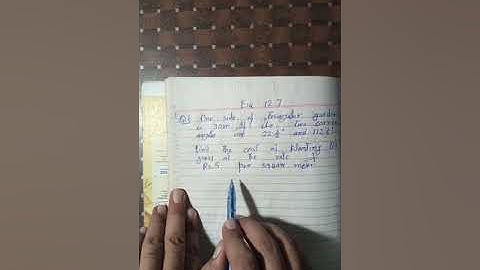 Ex 12.7
Q3 One side of triangular garden
is 30m if its two corner
angles are 22½° and 112½°
Find the cost of planting
grass at the rate of
Rs.5 per square meter